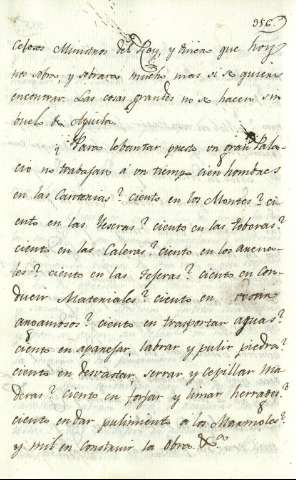 356.
celosos Ministros del Rey, y tierra que hoy
nos sobra y sobrara mucha mas si se quiere
encontrar. Las cosas grandes no se hacen sin
buelo de Aguila.
¿Para lebantar presto un gran Pala-
cio no trabajan à un tiempo cien hombres
en las Canteras? ciento en los Montes? ci-
ento en las Yeseras? ciento en las
ciento en las Caleras? ciento en los arena-
les? ciento en las Tejeras? ciento en con-
ducir Materiales? ciento en
ciento en trasportar aguas?
ciento en aparejar, labrar y pulir piedra?
ciento en desvastar, serrar y cepillar ma-
deras? ciento en forjar y limar herrages?
ciento en dar pulimento à los Marmoles?
y mil en construir la obra &.ª